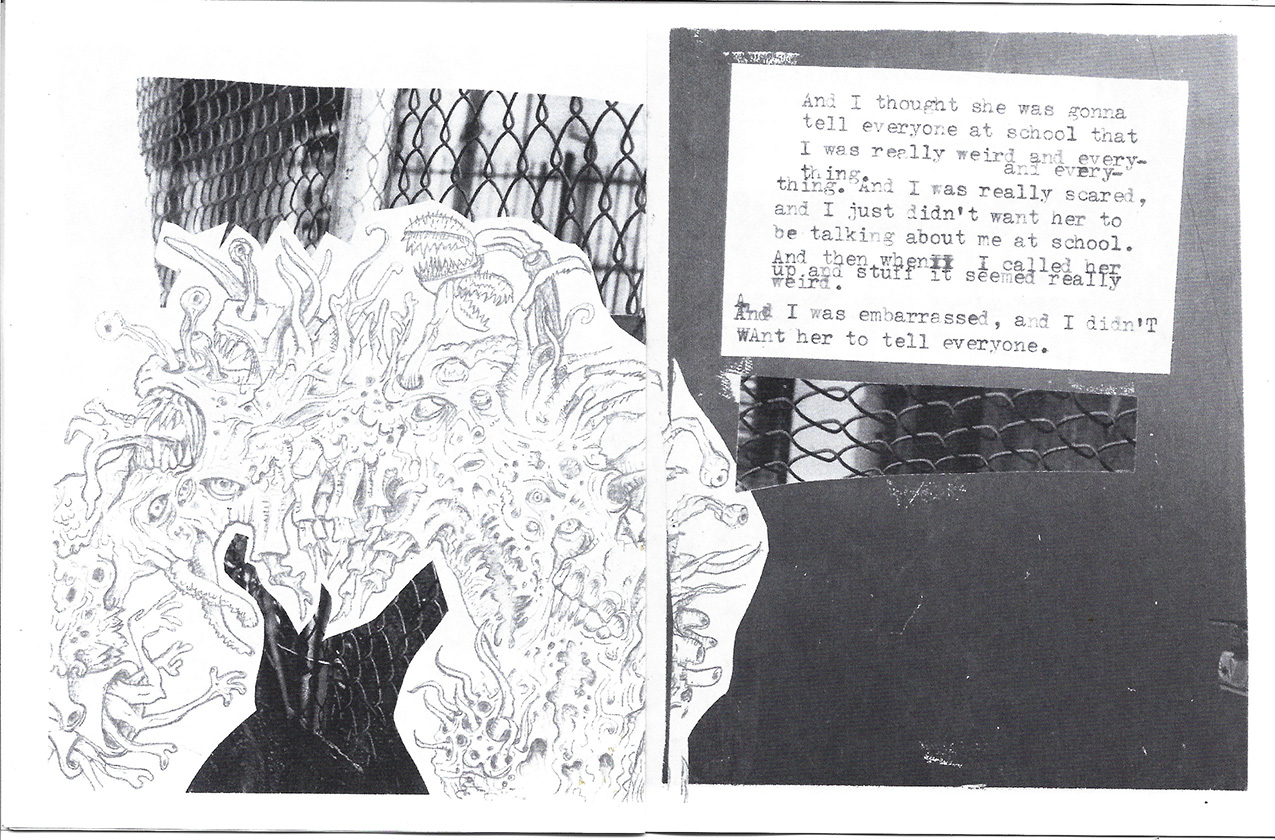 And I thought she was gonna
tell everyone at school that
I was really weird and every-
thing. and every-
thing. And I was really scared,
and I just didn't want her to
be talking about me at school.
And then whenII I called her
up and stuff it seemed really
weird.
And I was embarrassed, and I didn'T
WAnt her to tell everyone.